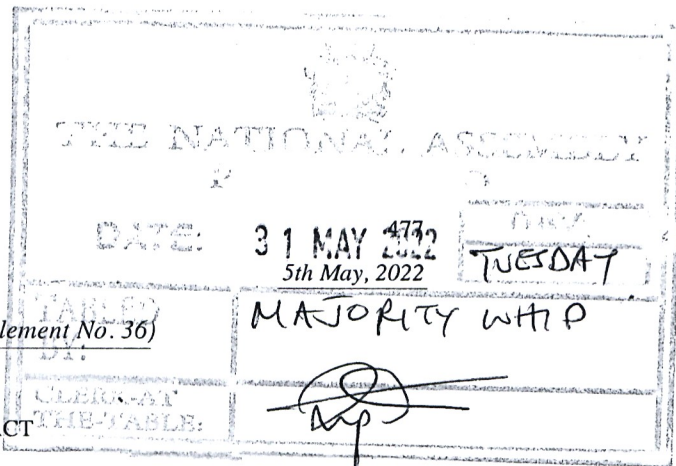 THE NATIONAL ASSEMBLY
DATE: 31 MAY 2022 DAY
477
5th May, 2022 TUESDAY
TABLED BY: MAJORITY WHIP
lement No. 36)
CLERK-AT THE-TABLE:
CT